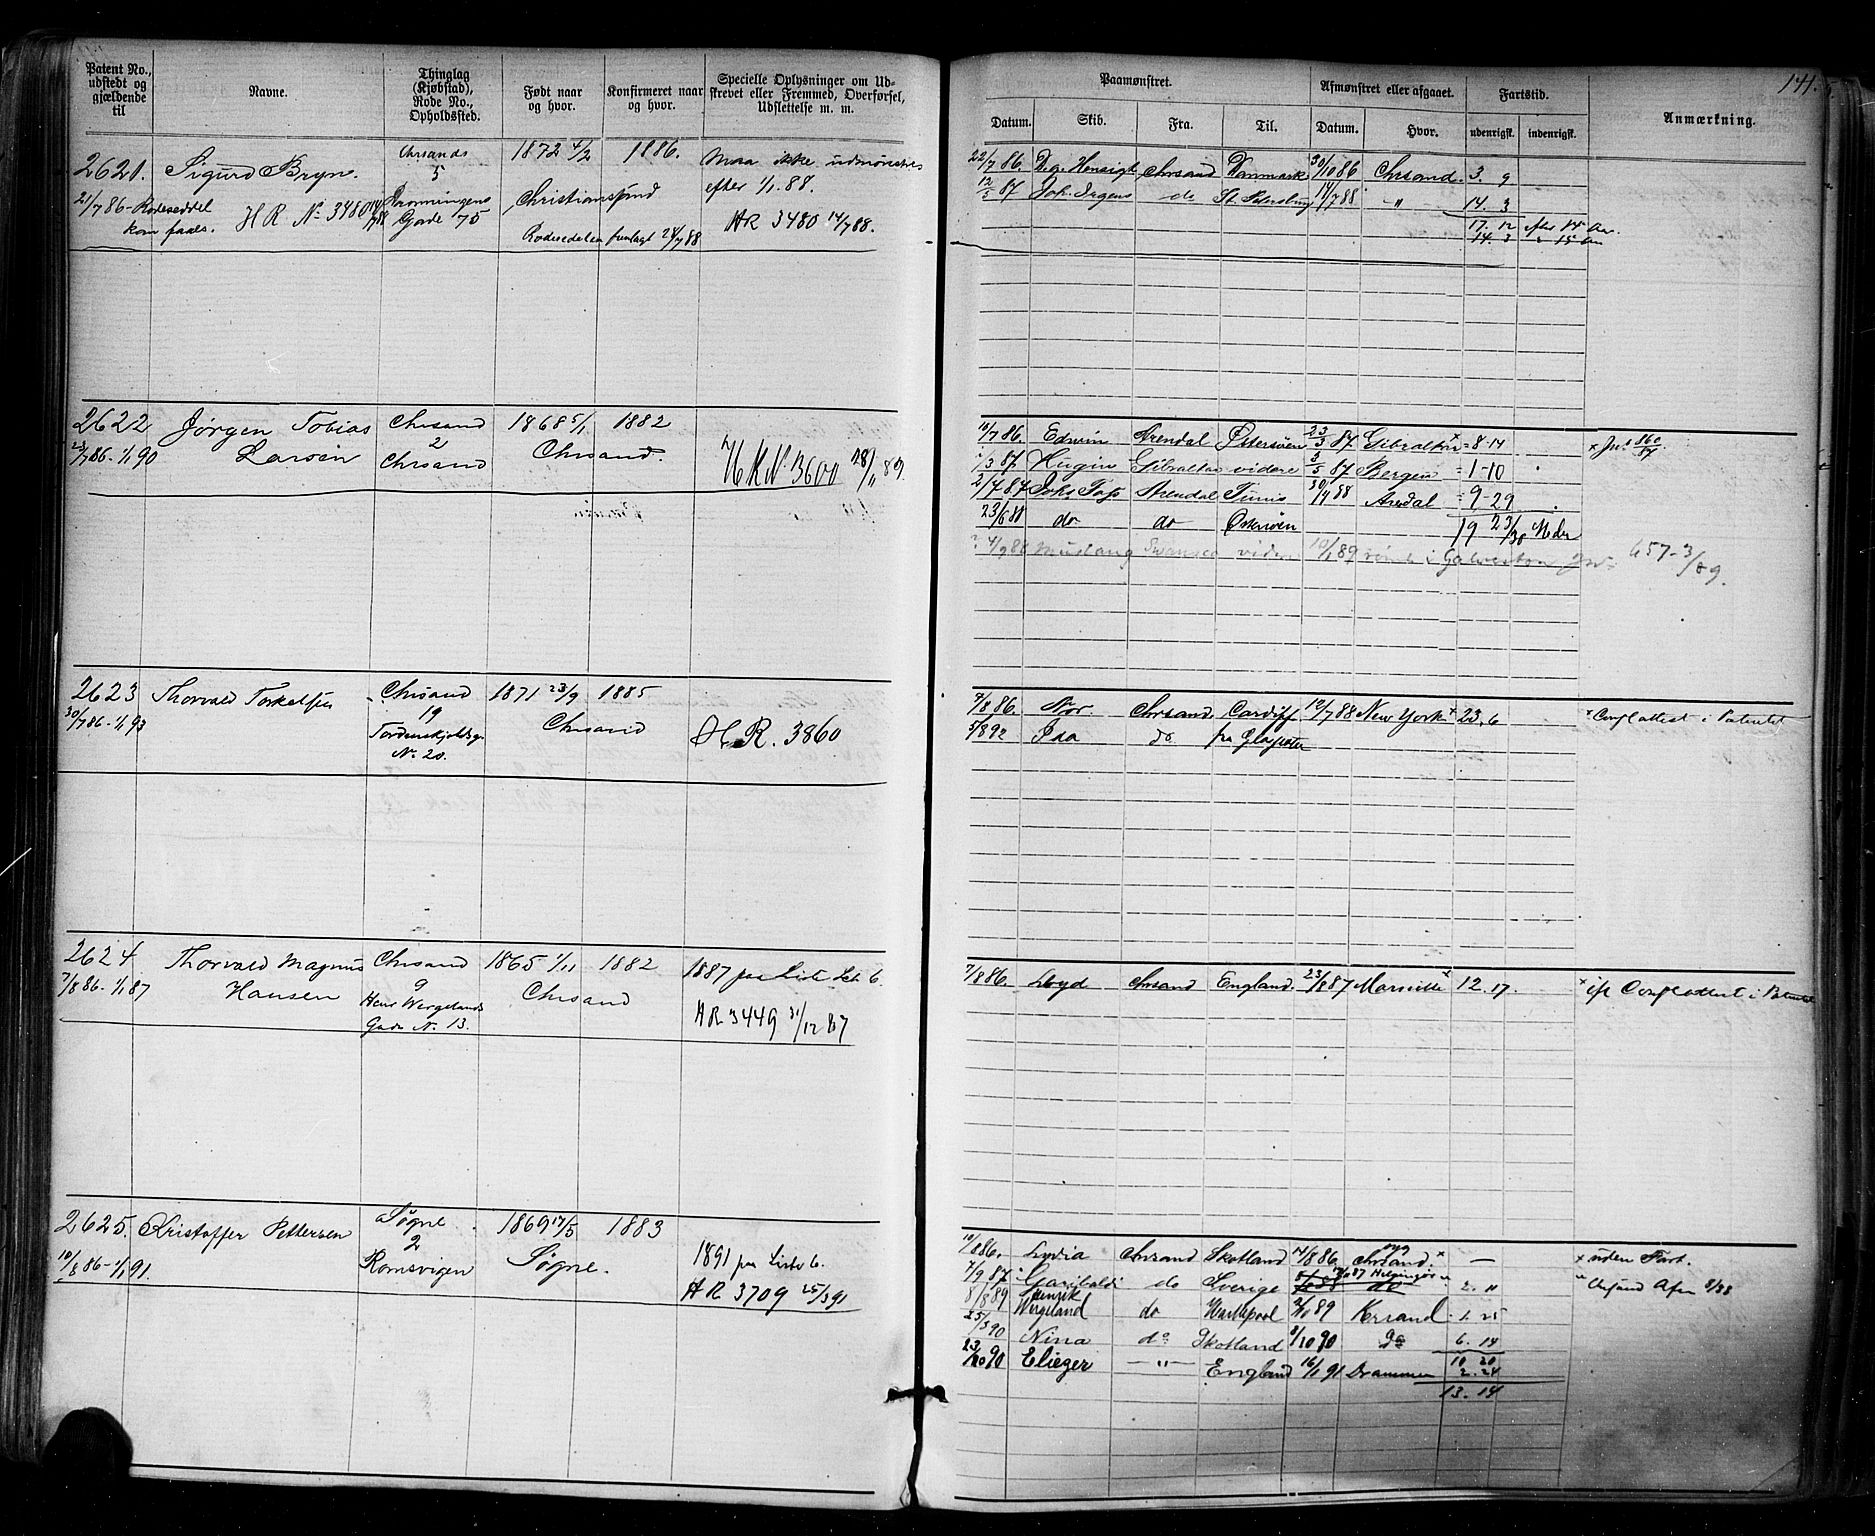 Patent No., udstedt og gjældende til
Navne.
Thinglag (Kjøbstad), Rode No., Opholdssted.
Født naar og hvor.
Konfirmeret naar og hvor.
Specielle Oplysninger om Udskrevet eller Fremmed, Overførsel, Udslettelse m. m.
2621. Sigurd Bryn. Chrsands 1872 4/2 1886. Maa ikke udmønstres
5
21/7 86 - Rodeseddel H R No 3480 14/7 88 Dronningens Christianssand efter 1/1 88.
kom paals. Gade 75 HR 3480 14/7 88.
Rodesedelen fremlagt 24/7 88
2622 Jørgen Tobias Chrsand 1868 5/1 1882
23/7 86 - 1/1 90 Larsen 2 Chrsand.
Chrsand HR No 3600 28/11 89
2623 Thorvald Torkelsen Chrsand 1871 23/9 1885
30/7 86 - 1/1 93 19 Chrsand H.R. 3860
Tordenskjoldsg.
No 20.
2624 Thorvald Magnus Chrsand 1865 1/11 1882 1887 paa Liste Lit. 6.
7/8 86 - 1/1 87 Hansen 9 Chrsand
Henr Wergelands HR 3449 31/12 87
Gade No 13.
2625. Kristoffer Pettersen Søgne 1869 17/5 1883
2
10/8 86 - 1/1 91. Romsvigen Søgne. 1891 paa Liste 6.
HR 3709 25/3 91
141.
Paamønstret.
Afmønstret eller afgaaet.
Fartstid.
Anmærkning.
Datum. Skib. Fra. Til. Datum. Hvor. udenrigsk. indenrigsk.
22/7 86. D. g. Hensigt Chrsand Danmark 30/10 86 Chrsand. 3. 9
12/5 87 Joh. Irgens do St. Petersburg 14/7 88 - " - 14. 3
17. 12 efter 14 Aar.
14. 3 " 15 Aar
10/7 86. Edwin Arendal Østersøen 23/3 87. Gibraltar x = 8-14 x Jnr 860/87
1/3 87. Hugin Gibraltar videre 3/5 87 Bergen = 1-10
2/7 87 Johs Arendal Tunis 30/4 88 Arendal = 9-29
23/6 88 do do Østersøen 19 23/30 Mdr
4/9 88 Mustang Swansea videre 10/1 89 rømt i Galveston Jnr 657-3/89.
7/8 86. Nor. Chrsand. Cardiff 12/7 88 New York x 23. 6 x Conf. attest i Patentet
5/8 92 Ida do fra
7/8 86. Loyd Chrsand England. 23/8 87 Marseille x 12. 17. x if Conf. attest i Patentet
10/8 86. Lydia Chrsand Skotland 14/8 86. Chrsand. x — x uden Fart.
7/9 87 Garibaldi do Sverige 87 Helsingør 2. "
8/8 89 Henrik
Wergeland do Hartlepool 89 Krsand 1. 25
25/3 90 Nina do Skotland 9/10 90 do 6. 14
23/10 90 Eliezer — " — England 16/1 91 Drammen 10 20
2. 24
13. 14